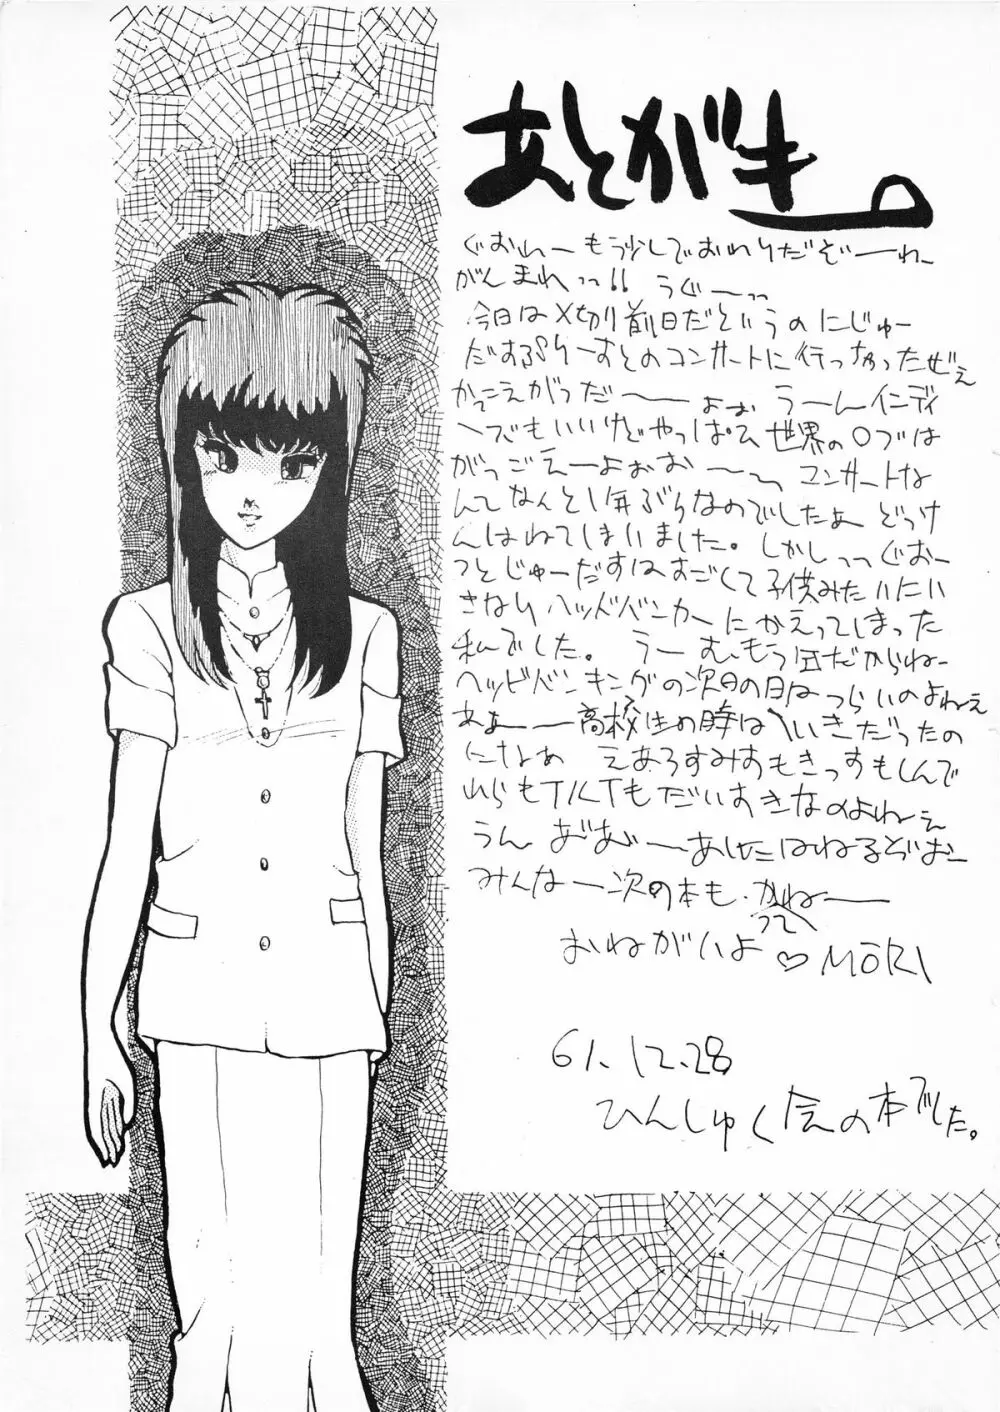 あとがき。
ぐおれーもう少しでおわりだぞーわー
がんまれっっ!! うぐーっっ
今日は〆切り前日だというのにじゅー
だすぷりーすとのコンサートに行っちゃったぜえ
かっこえがっだーーよぉぉ うーんインディ
ーズでもいいけどやっぱし世界の○ブは
がっごえーよぉぉおーー コンサートな
んてなんと1年ぶりなのでしたよー どっけ
んはねてしまいました。しかしっっぐおー
っとじゅーだすはすごくて子供みたいにい
きなりヘッドバンカーにかえってしまった
私でした。 うーむ、もう
だからねー
ヘッドバンキングの次の日の日はつらいのよねえ
あぁーー高校生の時はへいきだったの
になぁ えあろすみすもきっすもしんで
れらもTILTもだいすきなのよねーえ
うん おおーーあしたはねるぞおー
みんなー次の本も、かってねーー
おねがいよ♡MORI
61.12.28
ひんしゅく会の本でした。